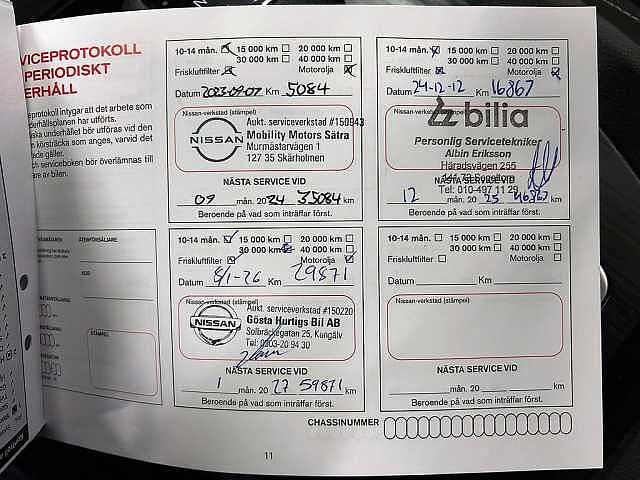 VICEPROTOKOLL
PERIODISKT
ERHÅLL
eprotokoll intygar att det arbete som
derhållsplanen har utförts.
ska underhållet bör utföras vid den
körsträcka som anges, varvid det
gäller.
serviceboken bör överlämnas till
are av bilen.
ÅTERFÖRSÄLJARE
STÄMPEL
10-14 mån. 15 000 km 20 000 km
30 000 km 40 000 km
Friskluftfilter Motorolja
Datum 2023-09-07 Km 5084
Nissan-verkstad (stämpel)
Aukt. serviceverkstad #150943
NISSAN
Mobility Motors Sätra
Murmästarvägen 1
127 35 Skärholmen
NÄSTA SERVICE VID
09 mån. 20 24 35084 km
Beroende på vad som inträffar först.
10-14 mån. 15 000 km 20 000 km
30 000 km 40 000 km
Friskluftfilter Motorolja
Datum 24-12-12 Km 16867
Nissan-verkstad (stämpel)
bilia
Personlig Servicetekniker
Albin Eriksson
Häradsvägen 255
Tel: 010-497 11 29
NÄSTA SERVICE VID
12 mån. 20 25 46867 km
Beroende på vad som inträffar först.
10-14 mån. 15 000 km 20 000 km
30 000 km 40 000 km
Friskluftfilter Motorolja
Datum 8/1-26 Km 29871
Nissan-verkstad (stämpel)
Aukt. serviceverkstad #150220
NISSAN
Gösta Hurtigs Bil AB
Solbräckegatan 25, Kungälv
Tel: 0303-20 94 30
NÄSTA SERVICE VID
1 mån. 20 27 59871 km
Beroende på vad som inträffar först.
10-14 mån. 15 000 km 20 000 km
30 000 km 40 000 km
Friskluftfilter Motorolja
Datum Km
Nissan-verkstad (stämpel)
NÄSTA SERVICE VID
mån. 20 km
Beroende på vad som inträffar först.
CHASSINUMMER
11